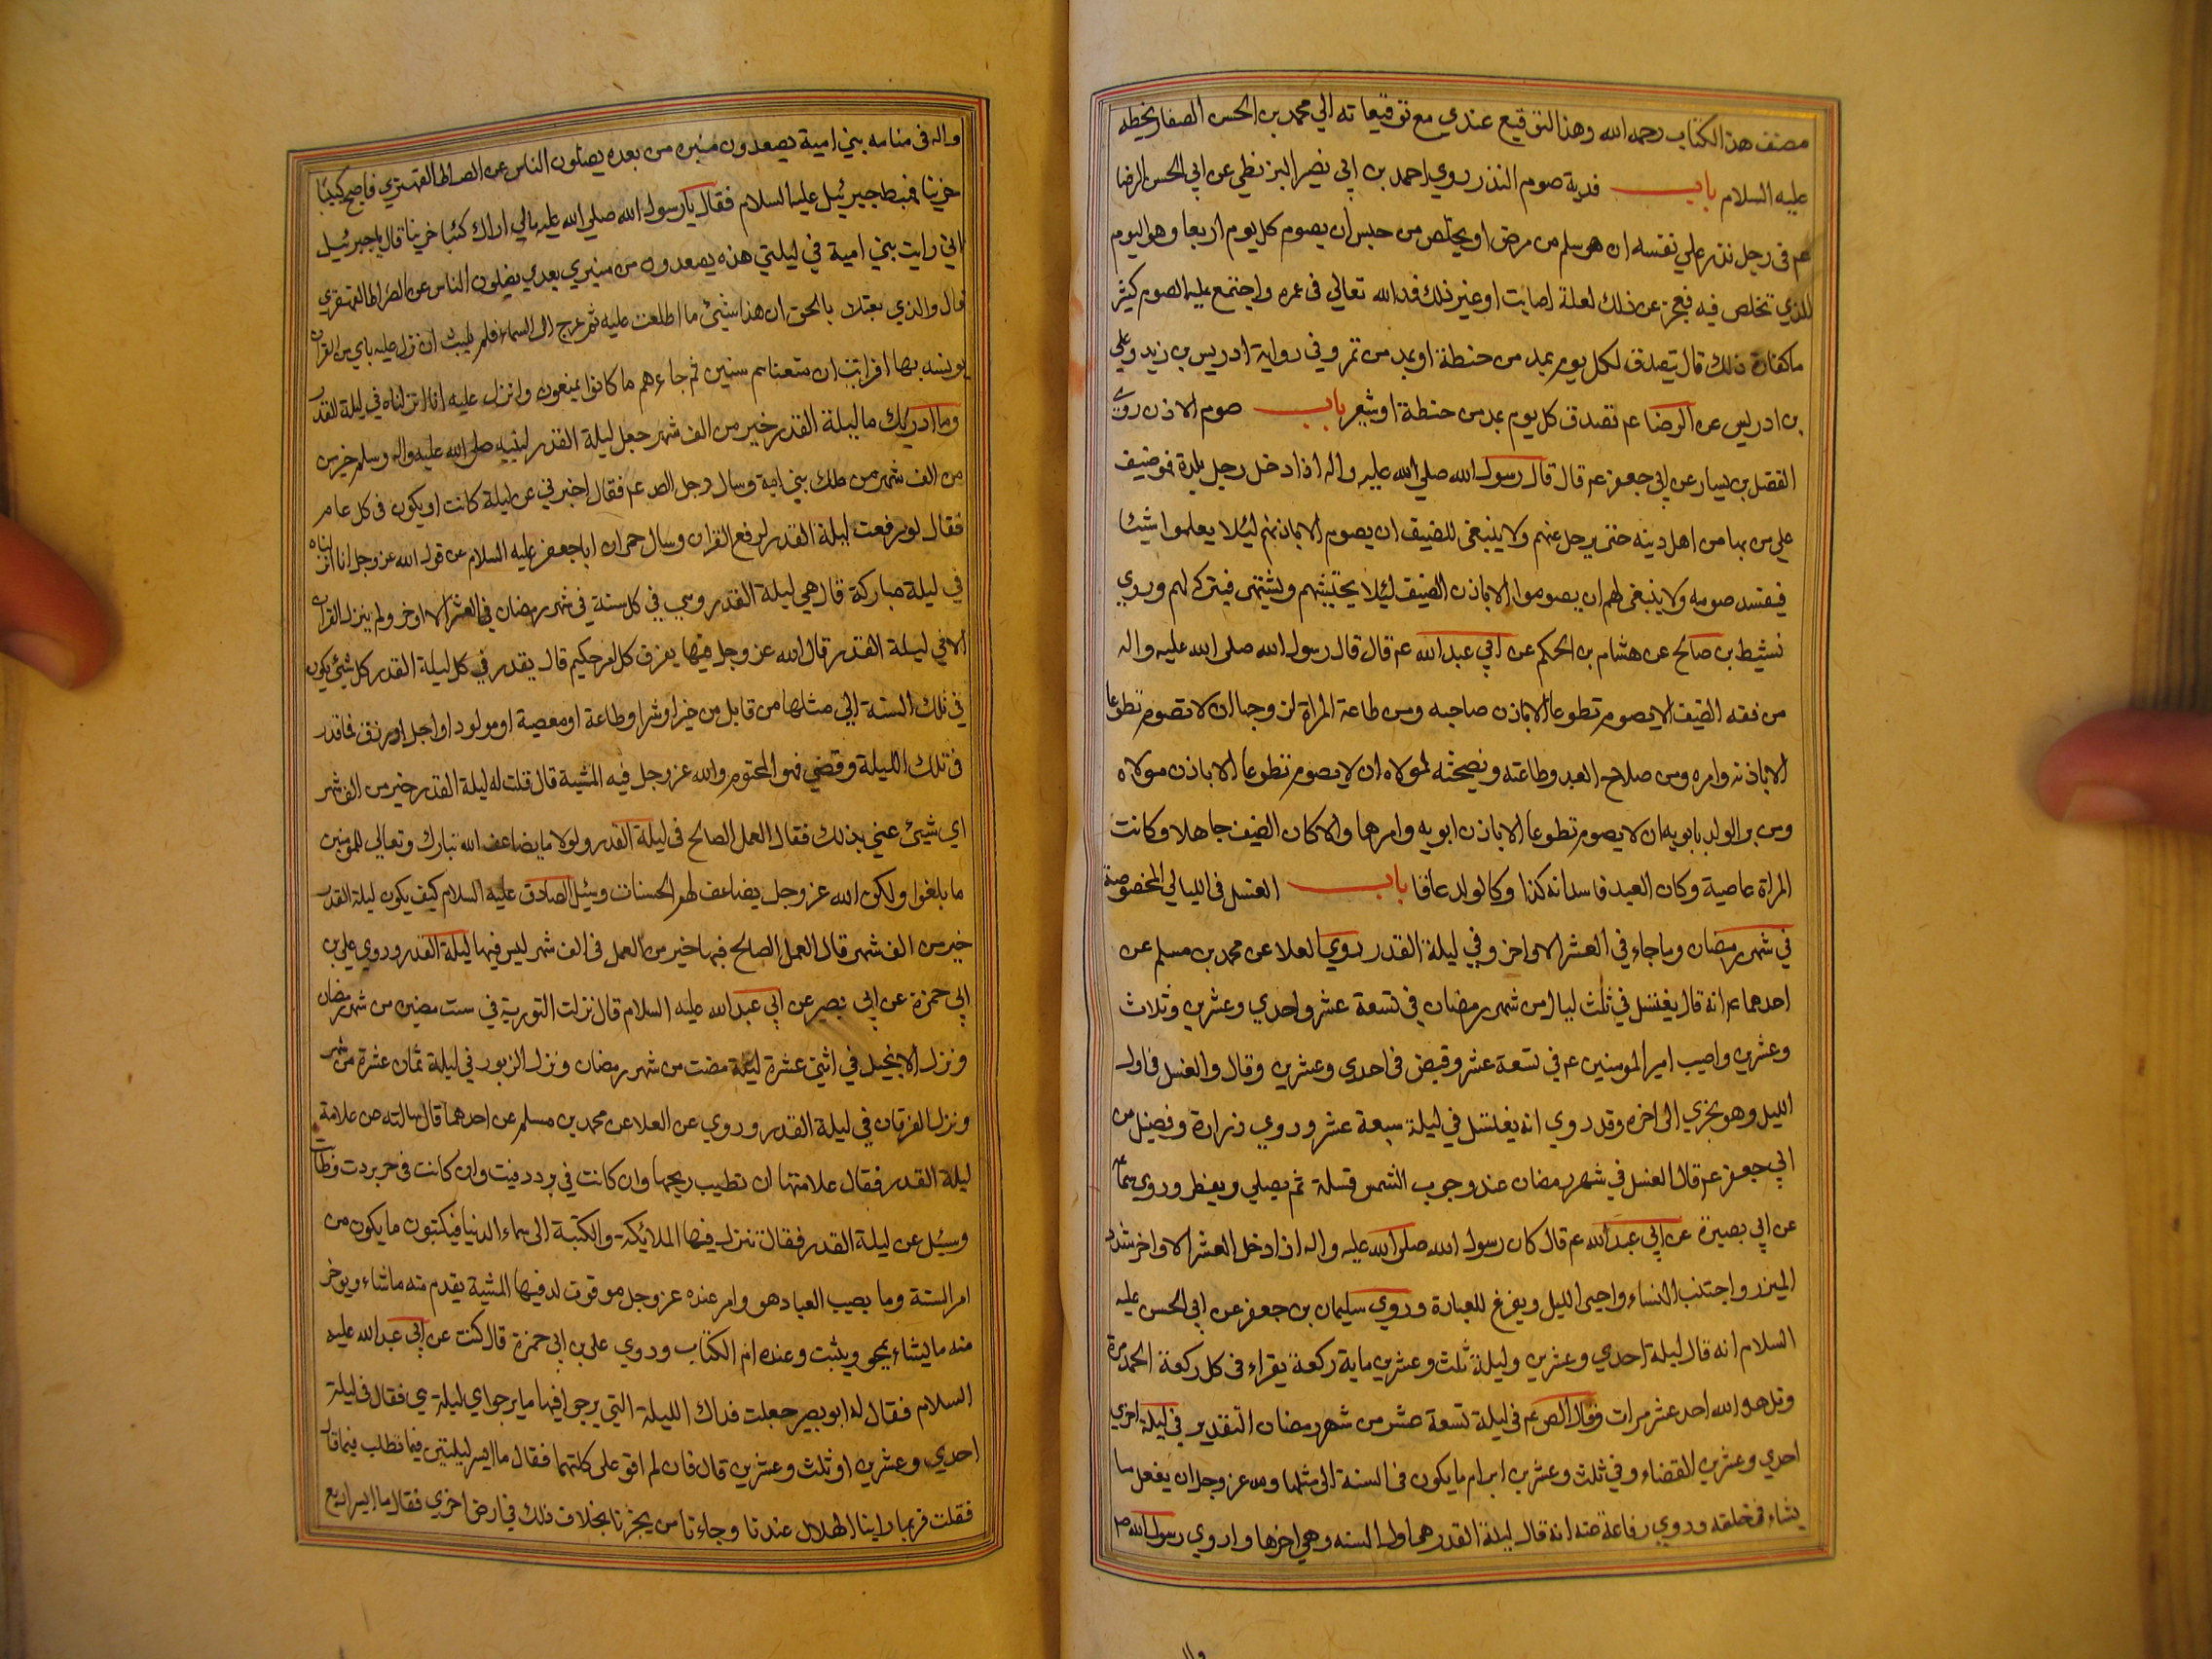 مصنف هذا الكتاب رحمه الله وهذا التوقيع عندي مع توقيعاته الي محمد بن الحسن الصفار بخطه
عليه السلام باب فدية صوم النذر روي احمد بن ابي نصر البزنطي عن ابي الحسن الرضا
عم في رجل نذر علي نفسه ان هو سلم من مرض او يخلص من حبس ان يصوم كل يوم اربعا وهو اليوم
الذي تخلص فيه فيعجز عن ذلك لعلة اصابت او غير ذلك فمد الله تعالي في عمره واجتمع عليه الصوم كثير
ما كفارة ذلك قال يتصدق لكل يوم بمد من حنطة او بمد من تمر وفي رواية ادريس بن زيد وعلي
بن ادريس عن الرضا عم تصدق كل يوم بمد من حنطة او شعير باب صوم الاذن روي
الفضل بن يسار عن ابي جعفر عم قال قال رسول الله صلي الله عليه واله اذا دخل رجل بلدة فهو ضيف
علي من بها من اهل دينه حتي يرحل عنهم ولا ينبغي للضيف ان يصوم الا باذنهم ليئلا يعلموا شيئا
فيفسد صومه ولا ينبغي لهم ان يصوموا الا باذن الضيف ليئلا يحتشهم ويشتهي فيتركه لهم وروي
نشيط بن صالح عن هشام بن الحكم عن ابي عبد الله عم قال قال رسول الله صلى الله عليه واله
من فقه الضيف الا يصوم تطوعا الا باذن صاحبه ومن طاعة المراة لزوجها ان لا تصوم تطوعا
الا باذنه وامره ومن صلاح العبد وطاعته ونصحته لمولاه ان لا يصوم تطوعا الا باذن مولاه
ومن بر الولد بابويه ان لا يصوم تطوعا الا باذن ابويه وامرهما والا كان الضيف جاهلا وكانت
المراة عاصية وكان العبد فاسدا وكان الولد عاقا باب الغسل في الليالي المخصوصة
في شهر رمضان وما جاء في العشر الاواخر وفي ليلة القدر روي العلا عن محمد بن مسلم عن
احدهما عم انه قال يغتسل في ثلث ليال من شهر رمضان في تسعة عشر واحدي وعشرين وثلاث
وعشرين واصيب امير المومنين عم في تسعة عشر وقبض في احدي وعشرين وقال والغسل في اول
الليل وهو يجزي الى اخره وقد روي انه يغتسل في ليلة سبعة عشر وروي زرارة وفضيل عن
ابي جعفر عم قال الغسل في شهر رمضان عند وجوب الشمس قبله ثم يصلي ويفطر وروي سماعة
عن ابي بصير عن ابي عبد الله عم قال كان رسول الله صلى الله عليه واله اذا دخل العشر الاواخر شد
الميزر واجتنب النساء واحيى الليل ويفرغ للعبادة وروي سليمان بن جعفر عن ابي الحسن عليه
السلام انه قال ليلة احدي وعشرين وليلة ثلث وعشرين ماية ركعة يقراء في كل ركعة الحمد مرة
وقل هو الله احد عشر مرات وقال الص عم في ليلة تسعة عشر من شهر رمضان التقدير في ليلة
احدي وعشرين القضاء وفي ثلث وعشرين ابرام ما يكون في السنة الى مثلها وله عز وجل ان يفعل ما
يشاء في خلقه وروي رفاعة عنه انه قال ليلة القدر هي اول السنه وهي اخرها واروي رسول الله ص
واله في منامه بني امية يصعدون منبره من بعده يضلون الناس عن الصراط القهقري فاصبح كئيبا
حزينا فهبط جبرئيل عليه السلام فقال يا رسول الله صلي الله عليه مالي اراك كئبا حزينا قال يا جبرئيل
اني رايت بني امية في ليلتي هذه يصعدون من منبري بعدي يضلون الناس عن الصراط القهقري
قال والذي بعثك بالحق ان هذا شيئ ما اطلعت عليه ثم عرج الى السماء فلم يلبث ان نزل عليه باي من القران
يونسه بها افرايت ان متعناهم سنين ثم جاءهم ما كانوا يمتعون وانزل عليه انا انزلناه في ليلة القدر
وما ادريك ما ليلة القدر خير من الف شهر جعل ليلة القدر لنبيه صلى الله عليه واله وسلم خير من
من الف شهر من ملك بني امية وسال رجل الص عم فقال اخبرني عن ليلة كانت او يكون في كل عام
فقال لو رفعت ليلة القدر لرفع القران وسال حمران ابا جعفر عليه السلام عن قول الله عز وجل انا انزلناه
في ليلة مباركة قال هي ليلة القدر وهي في كل سنة في شهر رمضان في العشر الاواخر ولم ينزل القران
الا في ليلة القدر قال الله عز وجل فيها يفرق كل امر حكيم قال يقدر في كل ليلة القدر كل شيئ يكون
في تلك السنة الي مثلها من قابل من خير او شر او طاعة او معصية او مولود او اجل او رزق فما قدر
في تلك الليلة وقضي فهو المحتوم والله عز وجل فيه المشية قال قلت له ليلة القدر خير من الف شهر
اي شيئ عني بذلك فقال العمل الصالح في ليلة القدر ولولا ما يضاعف الله تبارك وتعالي للمومنين
ما بلغوا ولكن الله عز وجل يضاعف لهم الحسنات وسئيل الصادق عليه السلام كيف يكون ليلة القدر
خير من الف شهر قال العمل الصالح فيها خير من العمل في الف شهر ليس فيها ليلة القدر وروي علي بن
ابي حمزة عن ابي بصير عن ابي عبد الله عليه السلام قال نزلت التورية في ست مضين من شهر رمضان
ونزل الانجيل في اثني عشرة ليلة مضت من شهر رمضان ونزل الزبور في ليلة ثمان عشرة من شهر
ونزل الفرقان في ليلة القدر وروي عن العلا عن محمد بن مسلم عن احدهما قال سالته عن علامة
ليلة القدر فقال علامتها ان تطيب ريحها وان كانت في برد دفيت وان كانت في حر بردت وطابت
وسيئل عن ليلة القدر فقال تنزل فيها الملائكة والكتبة الى سماء الدنيا فيكتبون ما يكون من
امر السنة وما يصيب العباد هو وامر عنده عز وجل موقوت له فيها المشية يقدم منه ما شاء ويوخر
منه ما يشاء يمحو ويثبت وعنده ام الكتاب وروي علي بن ابي حمزة قال كنت عن ابي عبد الله عليه
السلام فقال له ابو بصير جعلت فداك الليلة التي يرجوا فيها ما يرجو اي ليلة هي فقال في ليلة
احدي وعشرين او ثلث وعشرين قال فان لم اقو على كلتهما فقال ما ايسر ليلتين فيما تطلب فيما قال
فقلت فربما راينا الهلال عندنا وجاءنا من يخبرنا بخلاف ذلك في ارض اخري فقال ما ايسر اربع